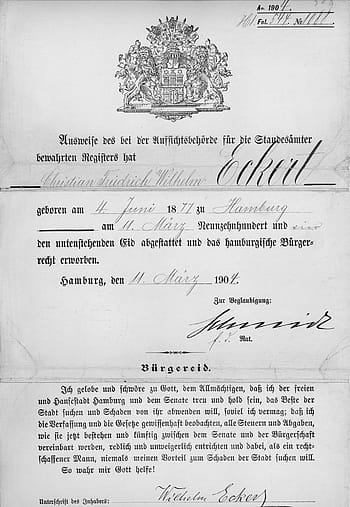 A. 1904.
Fol. 544. No
Ausweise des bei der Aufsichtsbehörde für die Standesämter
bewahrten Registers hat
Christian Friedrich Wilhelm Eckert
geboren am 4. Juni 1877 zu Hamburg
am 11. März Neunzehnhundert und
den untenstehenden Eid abgestattet und das hamburgische Bürger-
recht erworben.
Hamburg, den 11. März 1904.
Zur Beglaubigung:
Schmidt
Rat.
Bürgereid.
Ich gelobe und schwöre zu Gott, dem Allmächtigen, daß ich der freien
und Hansestadt Hamburg und dem Senate treu und hold sein, das Beste der
Stadt suchen und Schaden von ihr abwenden will, soviel ich vermag; daß ich
die Verfassung und die Gesetze gewissenhaft beobachten, alle Steuern und Abgaben,
wie sie jetzt bestehen und künftig zwischen dem Senate und der Bürgerschaft
vereinbart werden, redlich und unweigerlich entrichten und dabei, als ein recht-
schaffener Mann, niemals meinen Vorteil zum Schaden der Stadt suchen will.
So wahr mir Gott helfe!
Unterschrift des Inhabers: Wilhelm Eckert